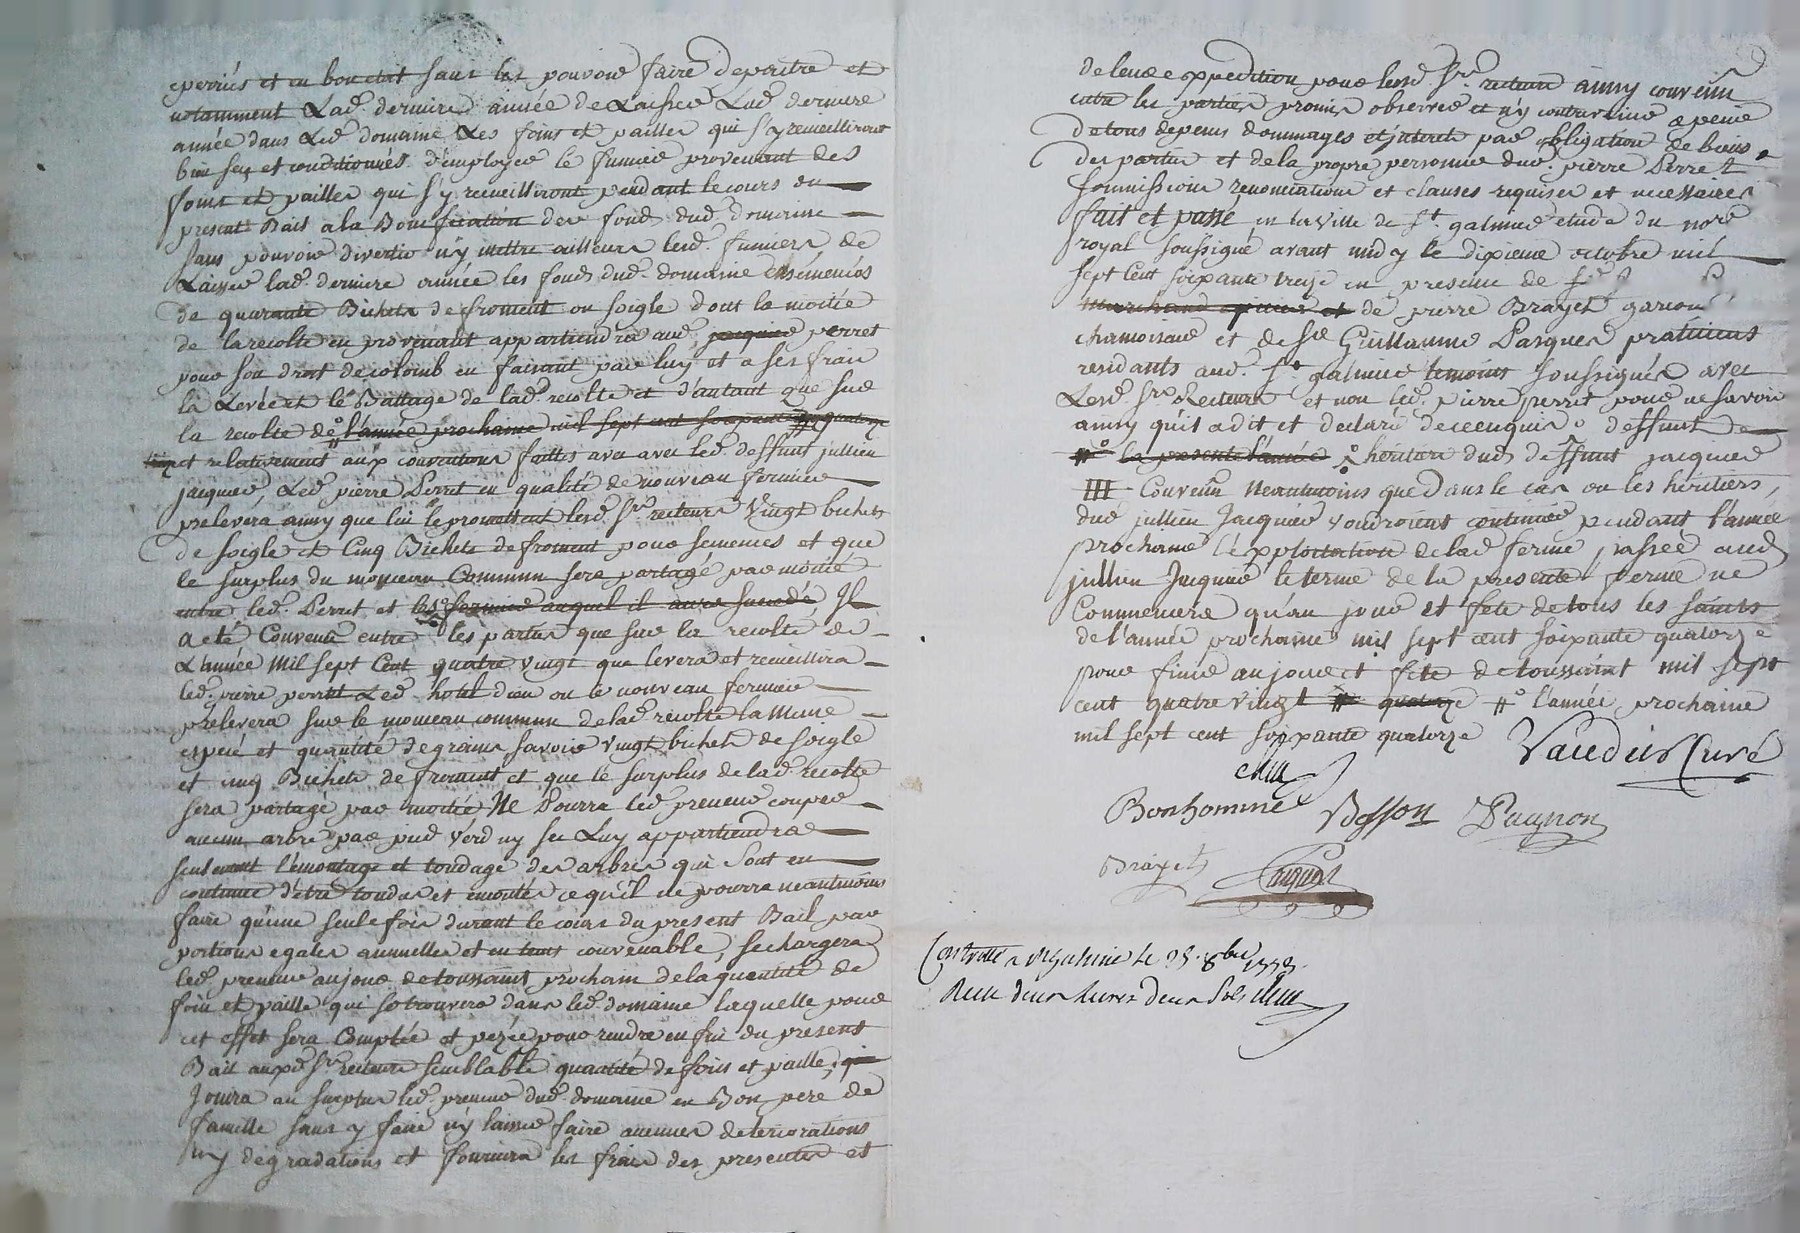 et en bon etat sans les pouvoir faire depaitre et
notamment Lad. derniere année de Laisser Lad. derniere
année dans Led. domaine Les foins et pailles qui s'y recueilliront
bien secs et conditionnés d'employer le fumier provenant des
foins et pailles qui s'y recueilliront pendant le cours du
present Bail a la Bonification des fonds dud. domaine
sans pouvoir divertir n'y mettre ailleurs lesd. fumiers de
Laisser lad. derniere année les fonds dud. domaine ensemencés
de quarante Bichets de froment ou soigle dont la moitié
de la recolte en provenant appartiendra aud. jacquier perret
pour son droit de colomb en faisant par luy et a ses frais
la Levée et le Battage de lad. recolte et d'autant que sur
la recolte de l'année prochaine mil sept cent soixante quatorze
et relativement aux conventions faittes avec avec led. deffunt jullien
jacquier, Led. pierre Perret en qualité de nouveau fermier
prelevera ainsy que lui le promettent lesd. srs. recteurs Vingt bichets
de soigle et Cinq Bichets de froment pour semences et que
le surplus du monceau Commun sera partagé par moitié
entre led. Perret et les fermier auquel il aura succedé Il
a eté Convenu entre les parties que sur la recolte de
L'année Mil sept Cent quatre vingt que levera et recueillira
led. pierre perret Led. hotel dieu ou le nouveau fermier
prelevera sur le monceau commun de lad. recolte la meme
espece et quantité de grains savoir vingt bichets de soigle
et cinq Bichets de froment et que le surplus de lad. recolte
sera partagé par moitié Ne Pourra led. preneur couper
aucun arbre par pied verd ny sec Luy appartiendra
seulement l'émontage et tondage des arbres qui sont en
coutume d'être tondus et emontés ce qu'il ne pourra neantmoins
faire qu'une seule fois durant le cours du present Bail par
portions egales annuelles et en tems convenable, se chargera
led. preneur au jour de toussaint prochain de la quantité de
foin et paille qui se trouvera dans led. domaine laquelle pour
cet effet sera Comptée et pezée pour rendre en fin du present
Bail auxd. srs. recteurs semblable quantité de foin et paille,
Jouira au surplus led. preneur dud. domaine en Bon pere de
famille sans y faire n'y laisser faire aucunes deteriorations
ny degradations et fournira les frais des presentes et
de leur expedition pour lesd. srs. recteurs ainsy convenu
entre les parties promis observer et n'y contrevenir a peine
de tous depens dommages et interets par obligation de biens
des parties et de la propre personne dud. pierre Perret
soumissions renonciations et clauses requises et necessaires
fait et passé en la ville de st. galmier etude du nore.
royal soussigné avant midy le dixieme octobre mil
sept Cent soixante treize en presence de
et de pierre Brayet garcon
chamoiseur et de sr. Guillaume Pasquer praticiens
residants aud. st. galmier temoins soussignés avec
Lesd. srs. Recteurs et non led. pierre perret pour ne savoir
ainsy qu'il a dit et declaré de ce enquis deffunt
la presente l'année heritiers dud. deffunt jacquier
Convenu Neantmoins que Dans le cas ou les héritiers,
dud. jullien Jacquier voudroient continuer pendant l'année
prochaine l'exploitation de lad. ferme passée aud.
jullien Jacquier le terme de la presente ferme ne
Commencera qu'au jour et fete de tous les saints
de l'année prochaine mil sept cent soixante quatorze
pour finir au jour et fete de toussaint mil sept
cent quatre vingt quatorze l'année prochaine
mil sept cent soixante quatorze
Bonhomme Besson Pagnon
Brayet
Controllé a st galmier le 8bre 1773.
Recu deux livres deux sols